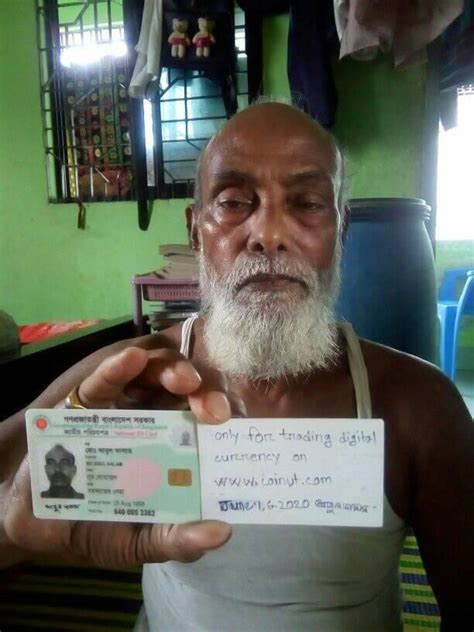 গণপ্রজাতন্ত্রী বাংলাদেশ সরকার
Government of the People's Republic of Bangladesh
জাতীয় পরিচয়পত্র / National ID Card
মোঃ আবুল কালাম
MD ABUL KALAM
640 000 3382
only for trading digital
currency on
www.coinut.com
2020